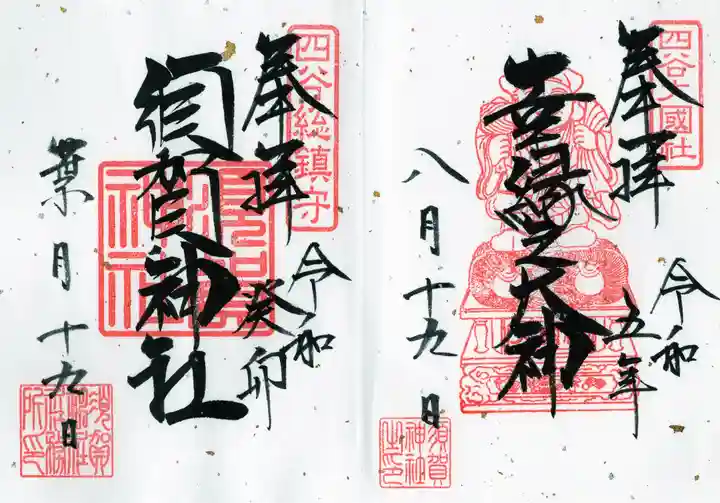 四谷大國社
奉拝
令和五年
喜縁之大神
八月十九日
須賀
神社
之印
四谷総鎮守
奉拝
令和癸卯
須賀神社
葉月十九日
須賀
神社